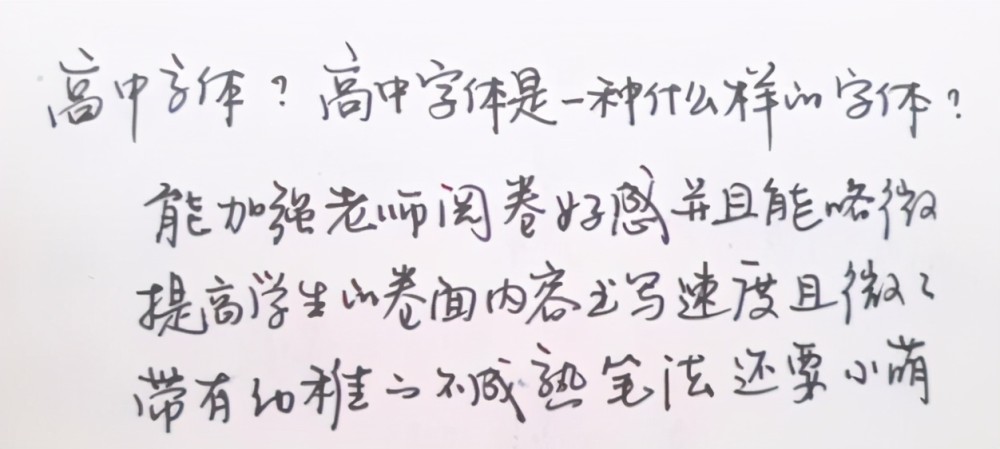 高中字体？高中字体是一种什么样的字体？
能加强老师阅卷好感并且能略微
提高学生的卷面内容书写速度且微微
带有幼稚与不成熟笔法还要小萌